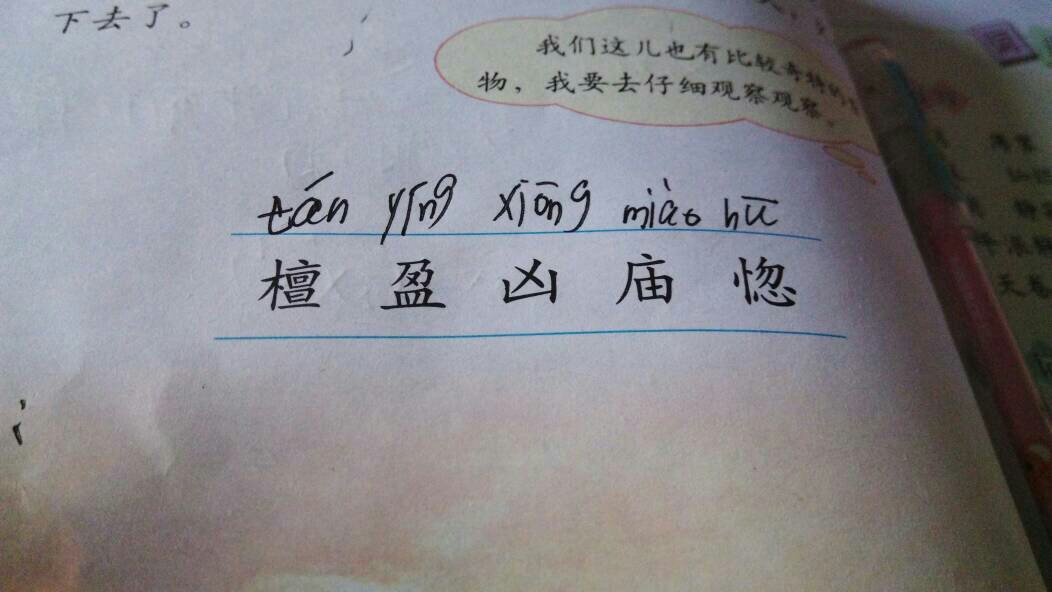 下去了。
我们这儿也有比较奇特的
物，我要去仔细观察观察。
tán yíng xiōng miào hū
檀 盈 凶 庙 惚